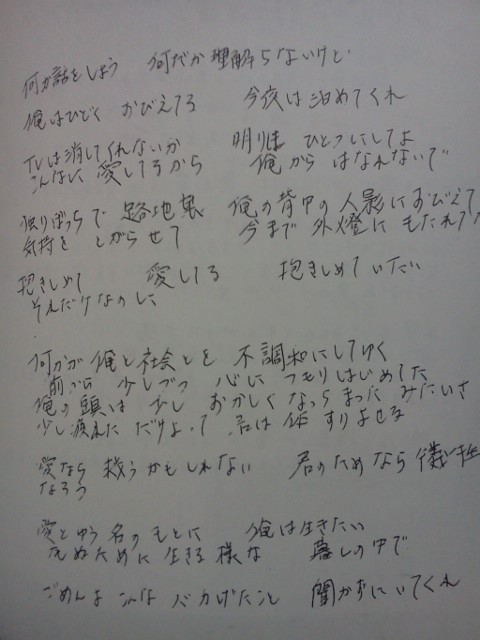 何か話をしよう 何だか理解らないけど
俺はひどく おびえてる 今夜は泊めてくれ
TVは消してくれないか 明りは ひとつにしてよ
こんなに 愛してるから 俺から はなれないで
独りぼっちで 路地裏 俺の背中の人影におびえて
気持を とがらせて 今まで 外燈に もたれてた
抱きしめて 愛してる 抱きしめていたい
それだけなのに
何かが 俺と社会とを 不調和にしてゆく
前から 少しづつ 心に つもりはじめてた
俺の頭は 少し おかしくなっちまった みたいさ
少し疲れた だけよ、って 君は 体 すりよせる
愛なら 救うかもしれない 君のためなら 犠牲
なろう
愛とゆう名の もとに 俺は生きたい
死ぬために 生きる 様な 暮しの中で
ごめんよ こんな バカげたこと 聞かずにいてくれ